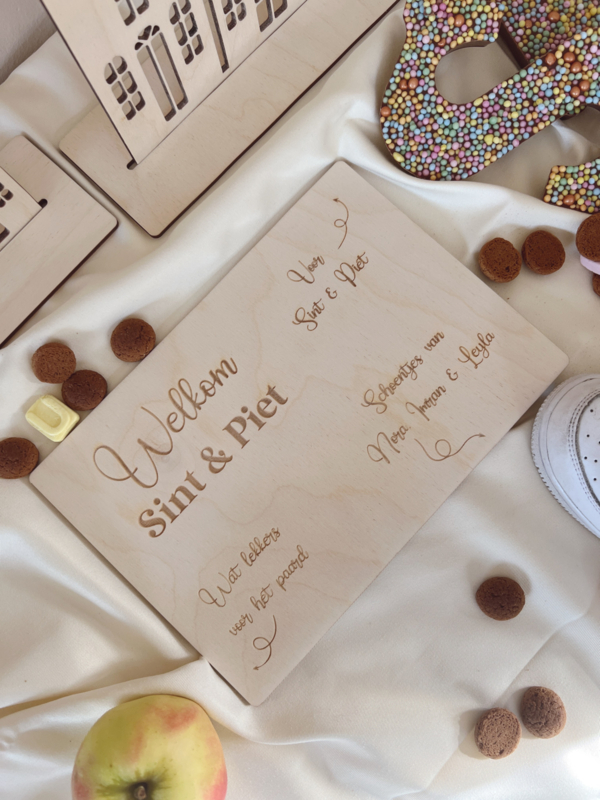 Welkom
Sint & Piet
Voor
Sint & Piet
Schoentjes van
Nora, Imran & Leyla
Wat lekkers
voor het paard